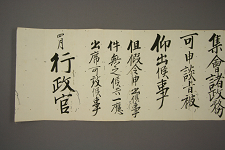 集會諸政務
可申談旨被
仰出候事
但假令申出候事
件無之候共一應
出席可致候事
四月
行政官